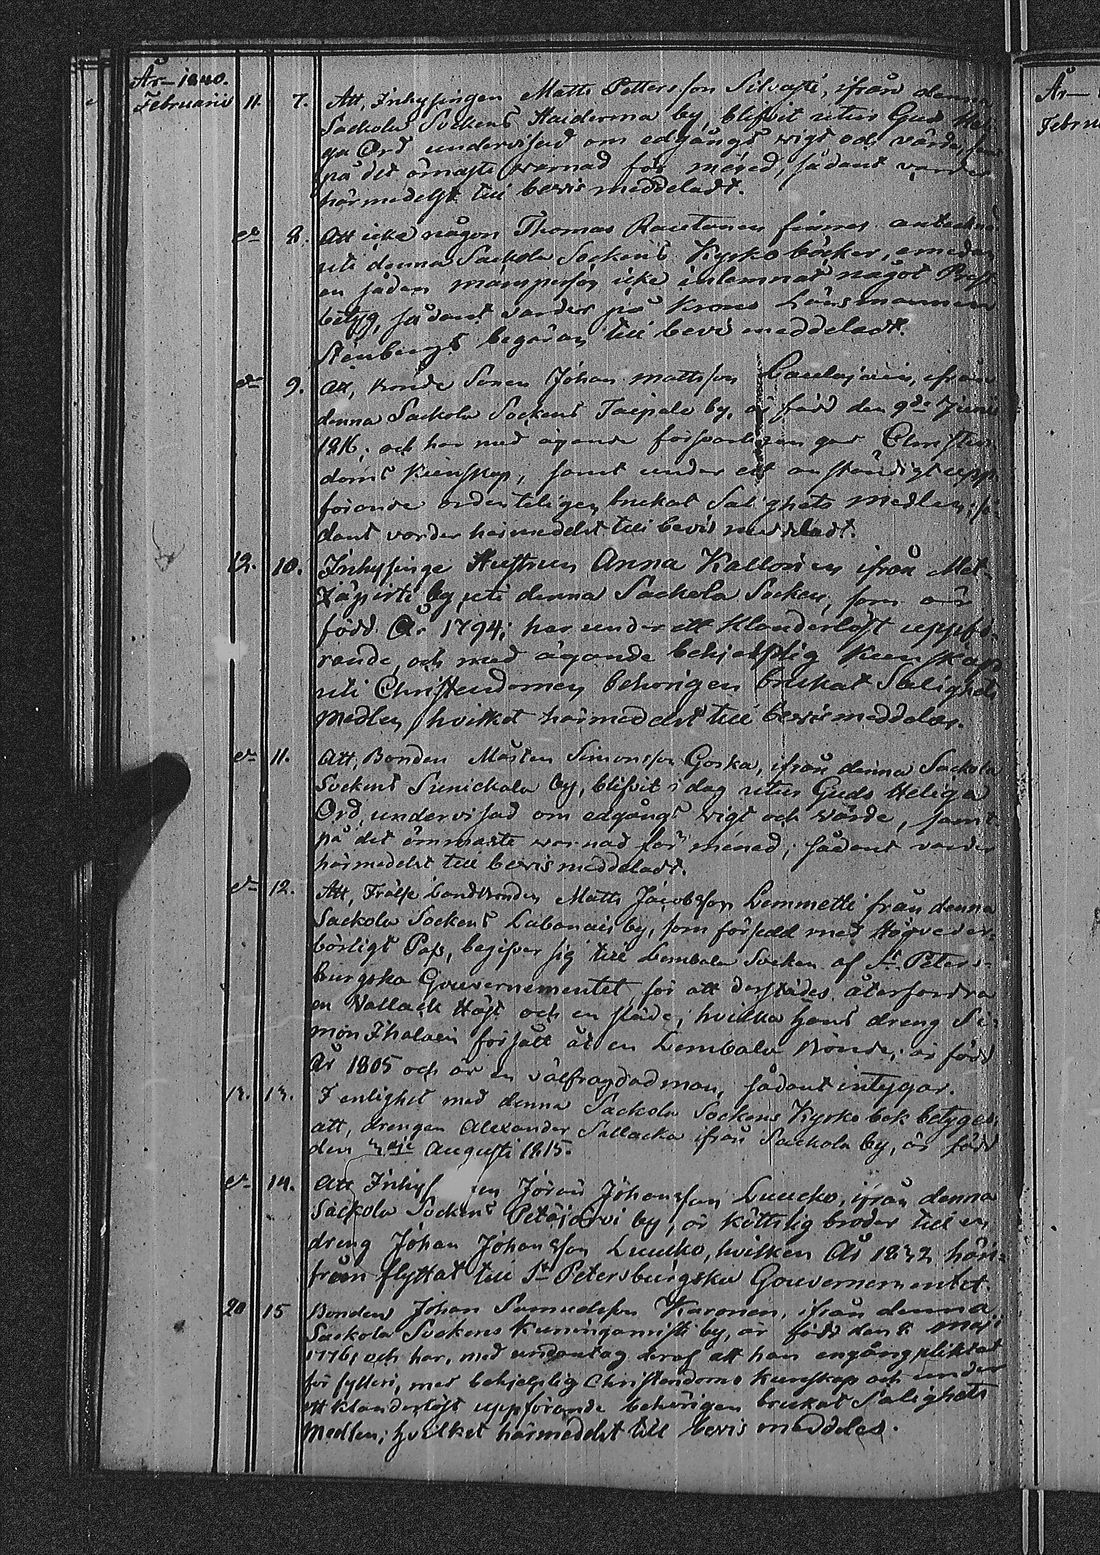 År-1840.
Februarii 11. 7. Att, Inhysingen Matts Pettersson Silvasti, ifrån denna
Sackola Sockens Haiderma by, blifvit utur Guds Heli-
ga Ord undervisad om edgångs vigt och värde,
på det ömaste varnad för mened, sådant varder
härmedelst till bevis meddeladt.
8. Att icke någon Thomas Rautanen finnes antecknad
uti denna Sackola Sockens Kyrko böcker, emedan
en sådan mansperson icke inlemnat något Prest
betyg, sådant varder på Krono Länsmannen
Stenbergs begäran till bevis meddeladt.
9. Att, Bonde Sonen Johan Mattsson ifrån
denna Sackola Sockens Taipale by, är född den 9de Junii
1816, och har med ägande försvarligen god Christen-
doms kunskap, samt under ett anständigt upp-
förande ordenteligen brukat Salighets Medlen, så-
dant varder härmedelst till bevis meddeladt.
12. 10. Inhysinge Hustrun Anna Kallonen ifrån Met-
uti denna Sackola Socken, som är
född År 1794; har under ett klanderlöst uppfö-
rande, och med ägande behjelplig kunskap
uti Christendomen behörigen brukat Salighets
Medlen, hvilket härmedelst till bevis meddelas.
11. Att, Bonden Mårten Simonsson Goska, ifrån denna Sackola
Sockens Sunickala by, blifvit i dag utur Guds Heliga
Ord undervisad om edgångs vigt och värde, samt
på det ömmaste varnad för mened; sådant varder
härmedelst till bevis meddeladt.
12. Att, Frälse Landbonden Matts Jacobsson Lemmetti från denna
Sackola Sockens Labanais by, som försedd med
börligt Pass, begifver sig till Lembala Socken af St Peters-
burgska Gouvernementet för att derstädes återfordra
en Vallack Häst och en släde, hvilka hans dreng Si-
mon Ihalain försålt åt en Lembala Bonde; är född
År 1805 och är en välfrägdad man, sådant intygar.
13. 13. I enlighet med denna Sackola Sockens Kyrko bok betygas,
att, drengen Alexander Sallacka ifrån Sackola by, är född
den Augusti 1815.
14. Att Johansson Luucko, ifrån denna
Sackola Sockens Petäjärvi by, är köttslig broder till en
dreng Johan Johansson Luucko, hvilken År 1832 här-
ifrån flyttat till St Petersburgska Gouvernementet.
20 15 Bonden Johan Samuelsson Karonen, ifrån denna
Sackola Sockens Kuninganristi by, är född den 8 Maji
1776, och har, med undantag deraf att han engång pliktat
för fylleri, med behjelplig Christendoms kunskap och under
ett klanderlöst uppförande behörigen brukat Salighets
Medlen; hvilket härmedelst till bevis meddelas.
Februa